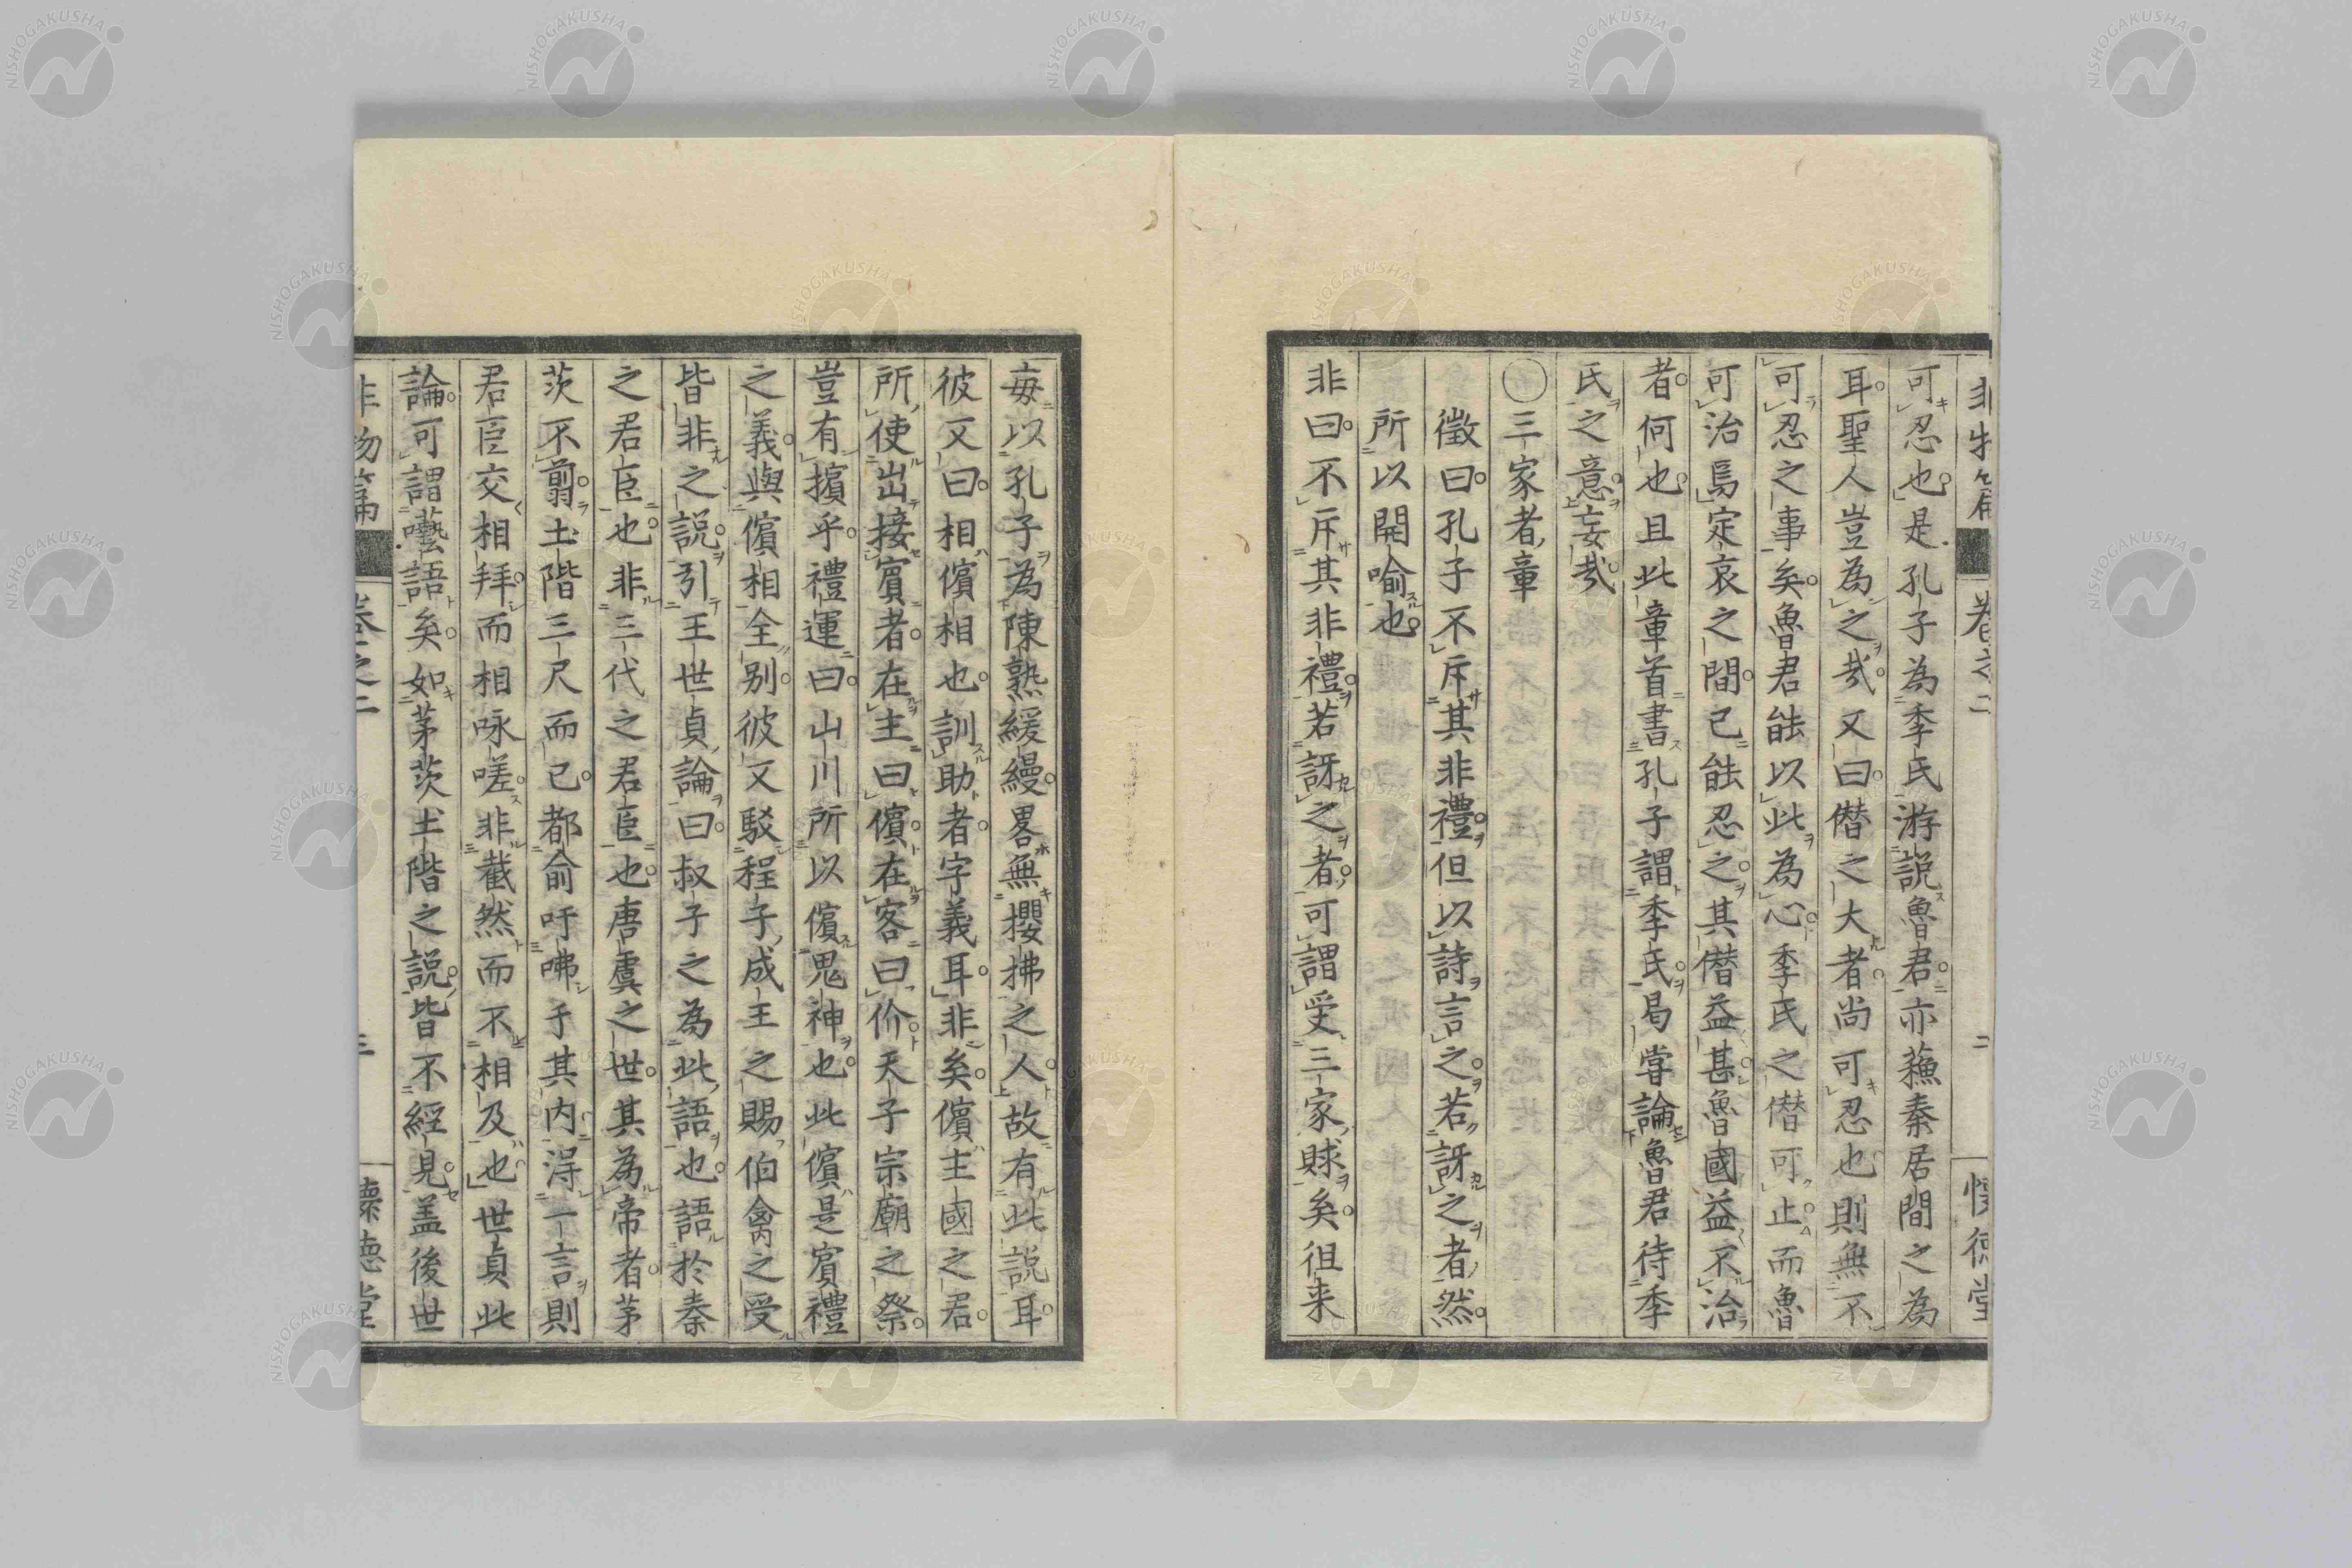 非物篇 卷之二 二 懷德堂
可忍也是孔子為季氏游說魯君亦蘓秦居間之為
耳聖人豈為之㢤又曰僭之大者尚可忍也則無不
可忍之事矣魯君能以此為心季氏之僭可止而魯
可治焉定哀之間已能忍之其僭益甚魯國益不治
者何也且此章首書孔子謂季氏曷嘗論魯君待季
氏之意妄㢤
〇三家者章
徵曰孔子不斥其非禮但以詩言之若訝之者然
所以開喻也
非曰不斥其非禮若訝之者可謂受三家賕矣徂来
每以孔子為陳熟緩縵畧無攖拂之人故有此説耳
彼又曰相儐相也訓助者字義耳非矣儐主國之君
所使出接賓者在主曰儐在客曰价天子宗廟之祭
豈有擯乎禮運曰山川所以儐鬼神也此儐是賓禮
之義與儐相全别彼又駁程子成王之賜伯禽之受
皆非之説引王世貞論曰叔子之為此語也語於秦
之君臣也非三代之君臣也唐虞之世其為帝者茅
茨不剪土階三尺而已都俞吁咈于其内淂一言則
君臣交相拜而相咏嗟非截然而不相及也世貞此
論可謂囈語矣如茅茨土階之説皆不經見盖後世
非物篇 卷之二 三 懷德堂